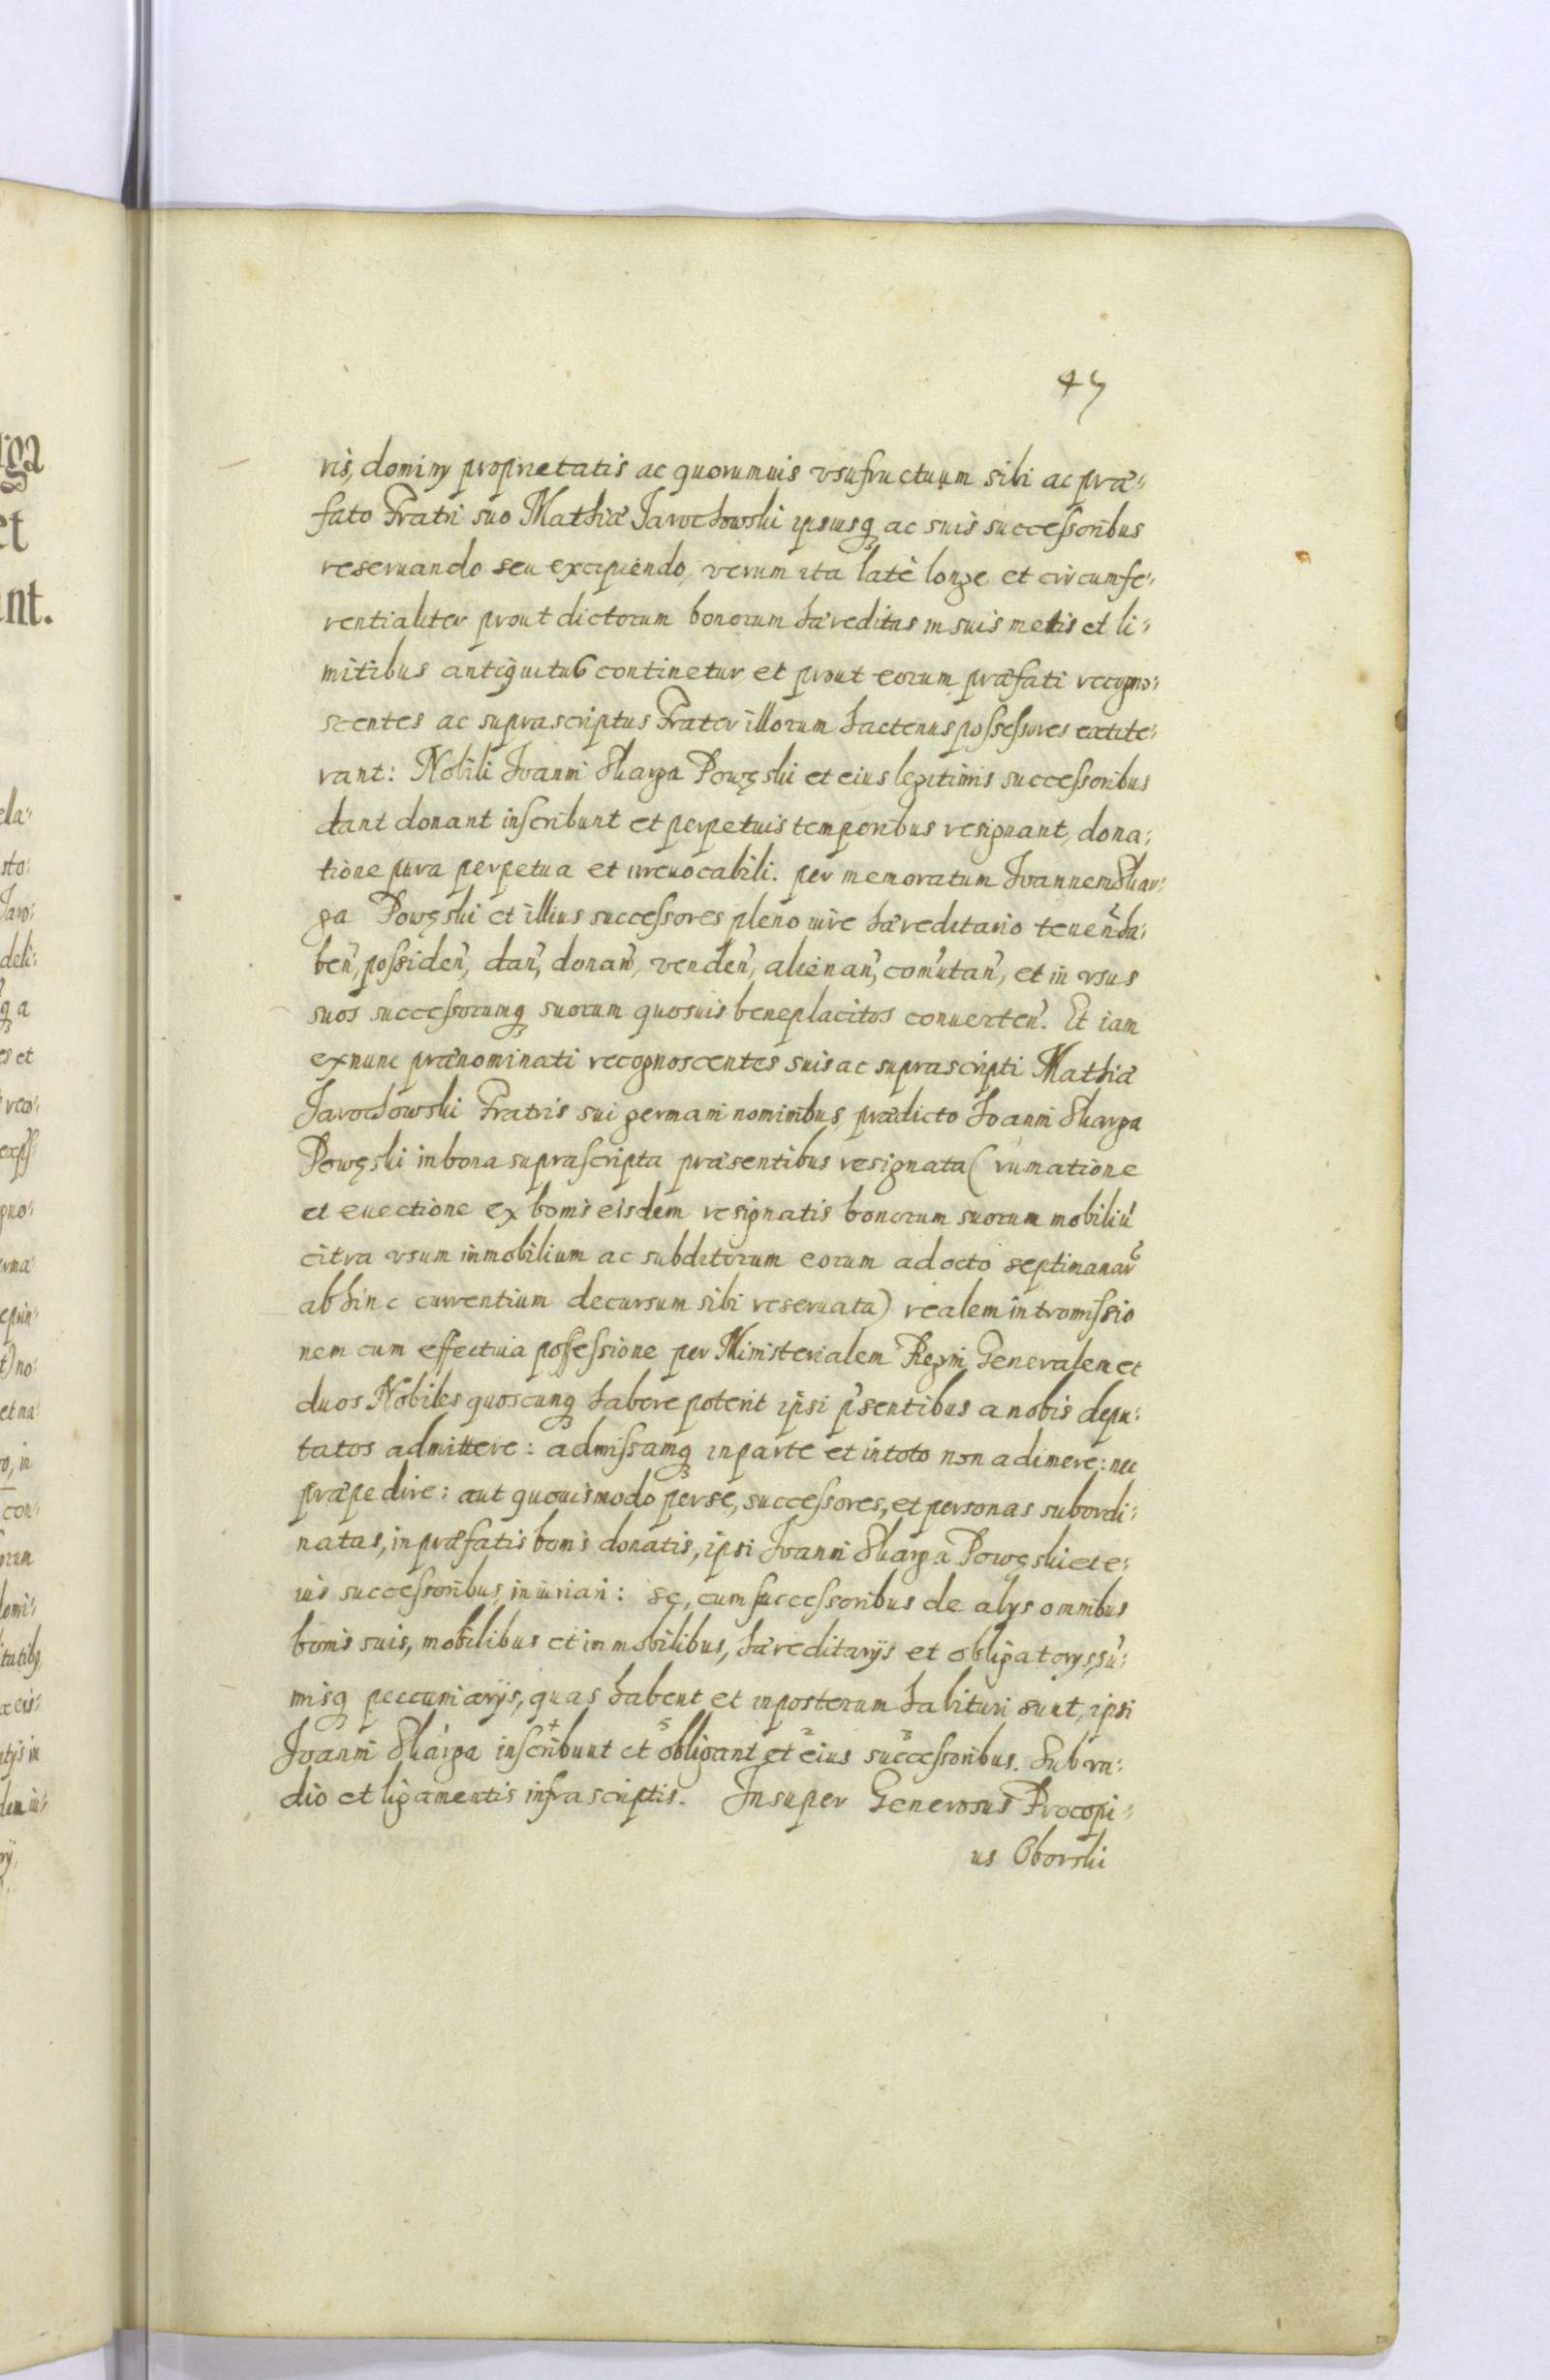 45
ris, dominy proprietatis ac quorumuis vsufructuum sibi ac præ:
fato Fratri suo Mathiæ Jarochowski ipsiusq ac suis successoribus
reseruando seu excipiendo, verum ita latè longe et circumfe:
rentialiter prout dictorum bonorum hæreditas in suis metis et li:
mitibus antiquitus continetur et prout eorum præfati recogno:
scentes ac suprascriptus Frater illorum hactenus possessores extite:
rant: Nobili Joanni Skarga Powęski et eius legitimis successoribus
dant donant inscribunt et perpetuis temporibus resignant, dona:
tione pura perpetua et irreuocabili. per memoratum Joannem Skar:
ga Powęski et illius successores pleno iure hæreditario tenen̄ ha:
ben̄, possiden̄, dan̄, donan̄, venden̄, alienan̄, com̄utan̄, et in vsus
suos successorumq suorum quosuis beneplacitos conuerten̄. Et iam
exnunc prænominati recognoscentes suis ac suprascripti Mathiæ
Jarochowski Fratris sui germani nominibus, prædicto Joanni Skarga
Powęski in bona suprascripta præsentibus resignata ( rumatione
et euectione ex bonis eisdem resignatis bonorum suorum mobiliū
citra vsum inmobilium ac subditorum eorum ad octo septimanar̄
abhinc currentium decursum sibi reseruata) realem intromissio
nem cum effectiua possessione per Ministerialem Regni Generalem et
duos Nobiles quoscunq habere poterit ipsi p̄sentibus a nobis depu:
tatos admittere: admissamq in parte et in toto non adimere: nec
præpedire: aut quouismodo per se, successores, et personas subordi:
natas, in præfatis bonis donatis, ipsi Joanni Skarga Powęski et e:
ius successoribus, iniuriari: sę, cum successoribus de alys omnibus
bonis suis, mobilibus et inmobilibus, hæreditarijs et obligatorys, sū:
misq peccuniarijs, quas habent et in posterum habituri sunt, ipsi
Joanni Skarga inscribunt et obligant et eius successoribus. Sub va:
dio et ligamentis infrascriptis. Insuper Generosus Procopi:
us Oborski